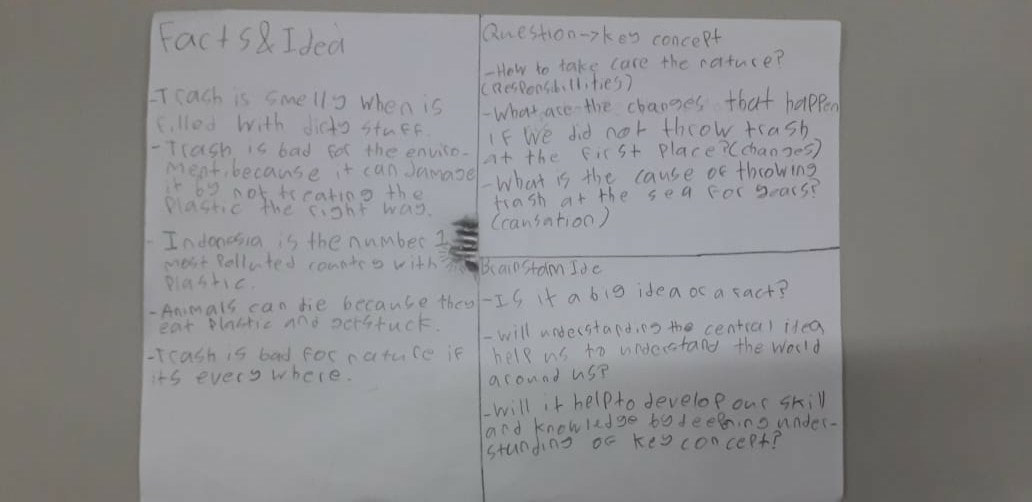 Facts & Idea
-Trash is smelly when is
filled with dirty stuff.
- Trash is bad for the enviro-
ment, because it can damage
it by not treating the
Plastic the right way.
- Indonesia is the number 1
most polluted country with
Plastic.
-Animals can die because they
eat plastic and getstuck.
-Trash is bad for nature if
its every where.
Question->key concept
-How to take care the nature?
(Responsibillities)
-What are the changes that happen
if We did not throw trash
at the first place?(changes)
-What is the cause of throwing
trash at the sea for years?
(causation)
Brainstorm Ide
-Is it a big idea or a fact?
-will understanding the central idea
help us to understand the world
around us?
-will it help to develop our skill
and knowledge by deepning under-
standing of key concept?